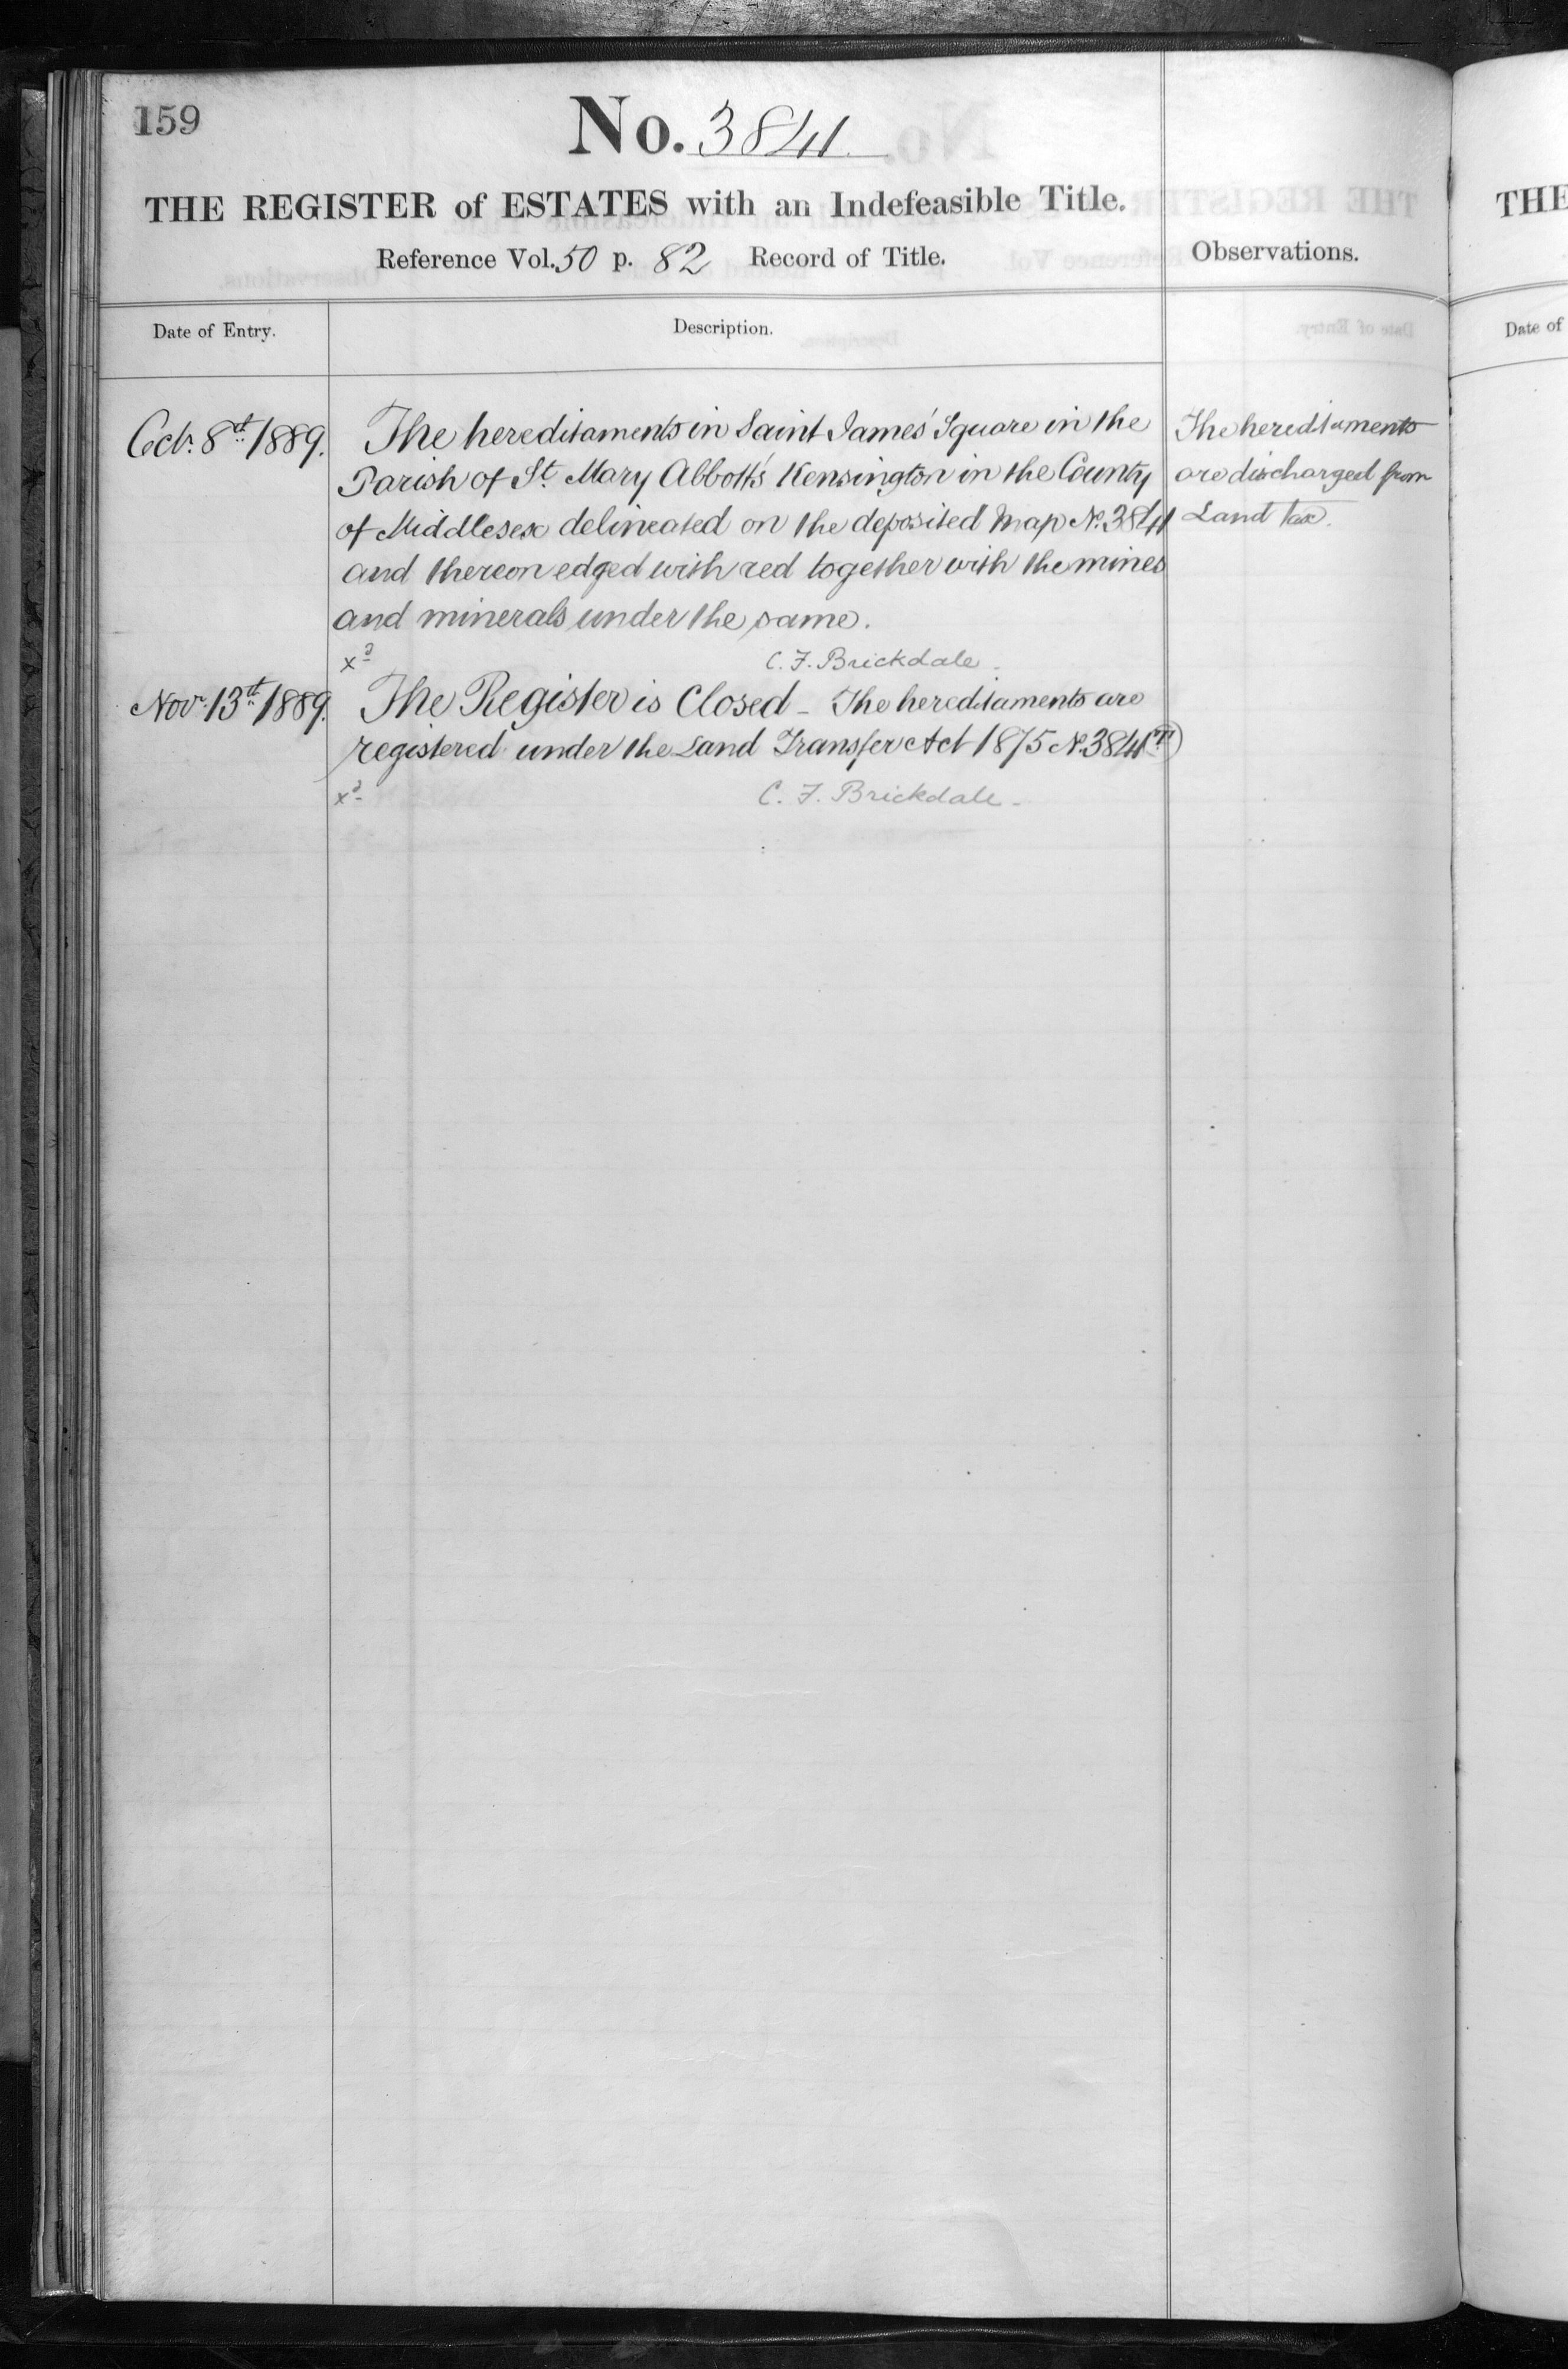 159
No. 3841.
THE REGISTER of ESTATES with an Indefeasible Title.
Reference Vol. 50 p. 82 Record of Title.
Observations.
Date of Entry.
Description.
Octr. 8th 1889.
The hereditaments in Saint James' Square in the
Parish of St. Mary Abbott's Kensington in the County
of Middlesex delineated on the deposited Map No. 3841
and thereon edged with red together with the mines
and minerals under the same.
xd
C. F. Brickdale.
The hereditaments
are discharged from
Land Tax.
Novr. 13th 1889.
The Register is Closed - The hereditaments are
registered under the Land Transfer Act 1875 No. 3841
xd
C. F. Brickdale -
THE
Date of